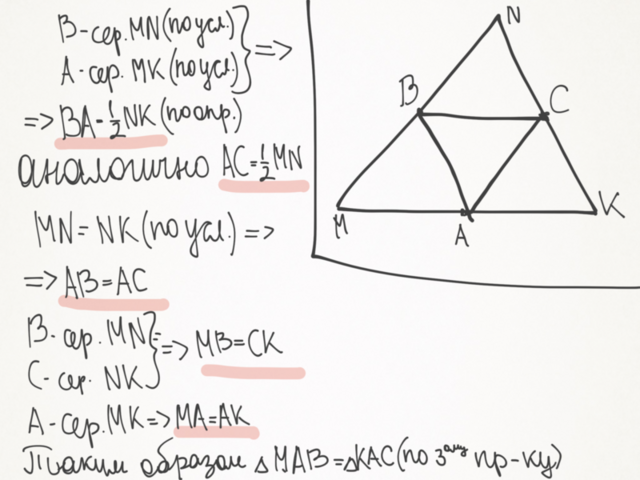 B-сер. MN (по усл.)
A-сер. MK (по усл.) } =>
=> BA = 1/2 NK (по опр.)
аналогично AC = 1/2 MN
MN = NK (по усл.) =>
=> AB = AC
B-сер. MN
C-сер. NK } => MB = CK
A-сер. MK => MA = AK
Таким образом △ MAB = △KAC (по 3ему пр-ку)
N
B
C
M
A
K